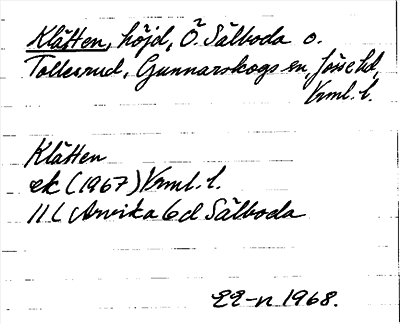 Klätten, höjd, Ö. Sälboda o.
Tollesrud, Gunnarskogs sn, Jösse hd,
Vrml. l.
Klätten
ek (1967) Vrml. l.
11C Arvika 6d Sälboda
1968.